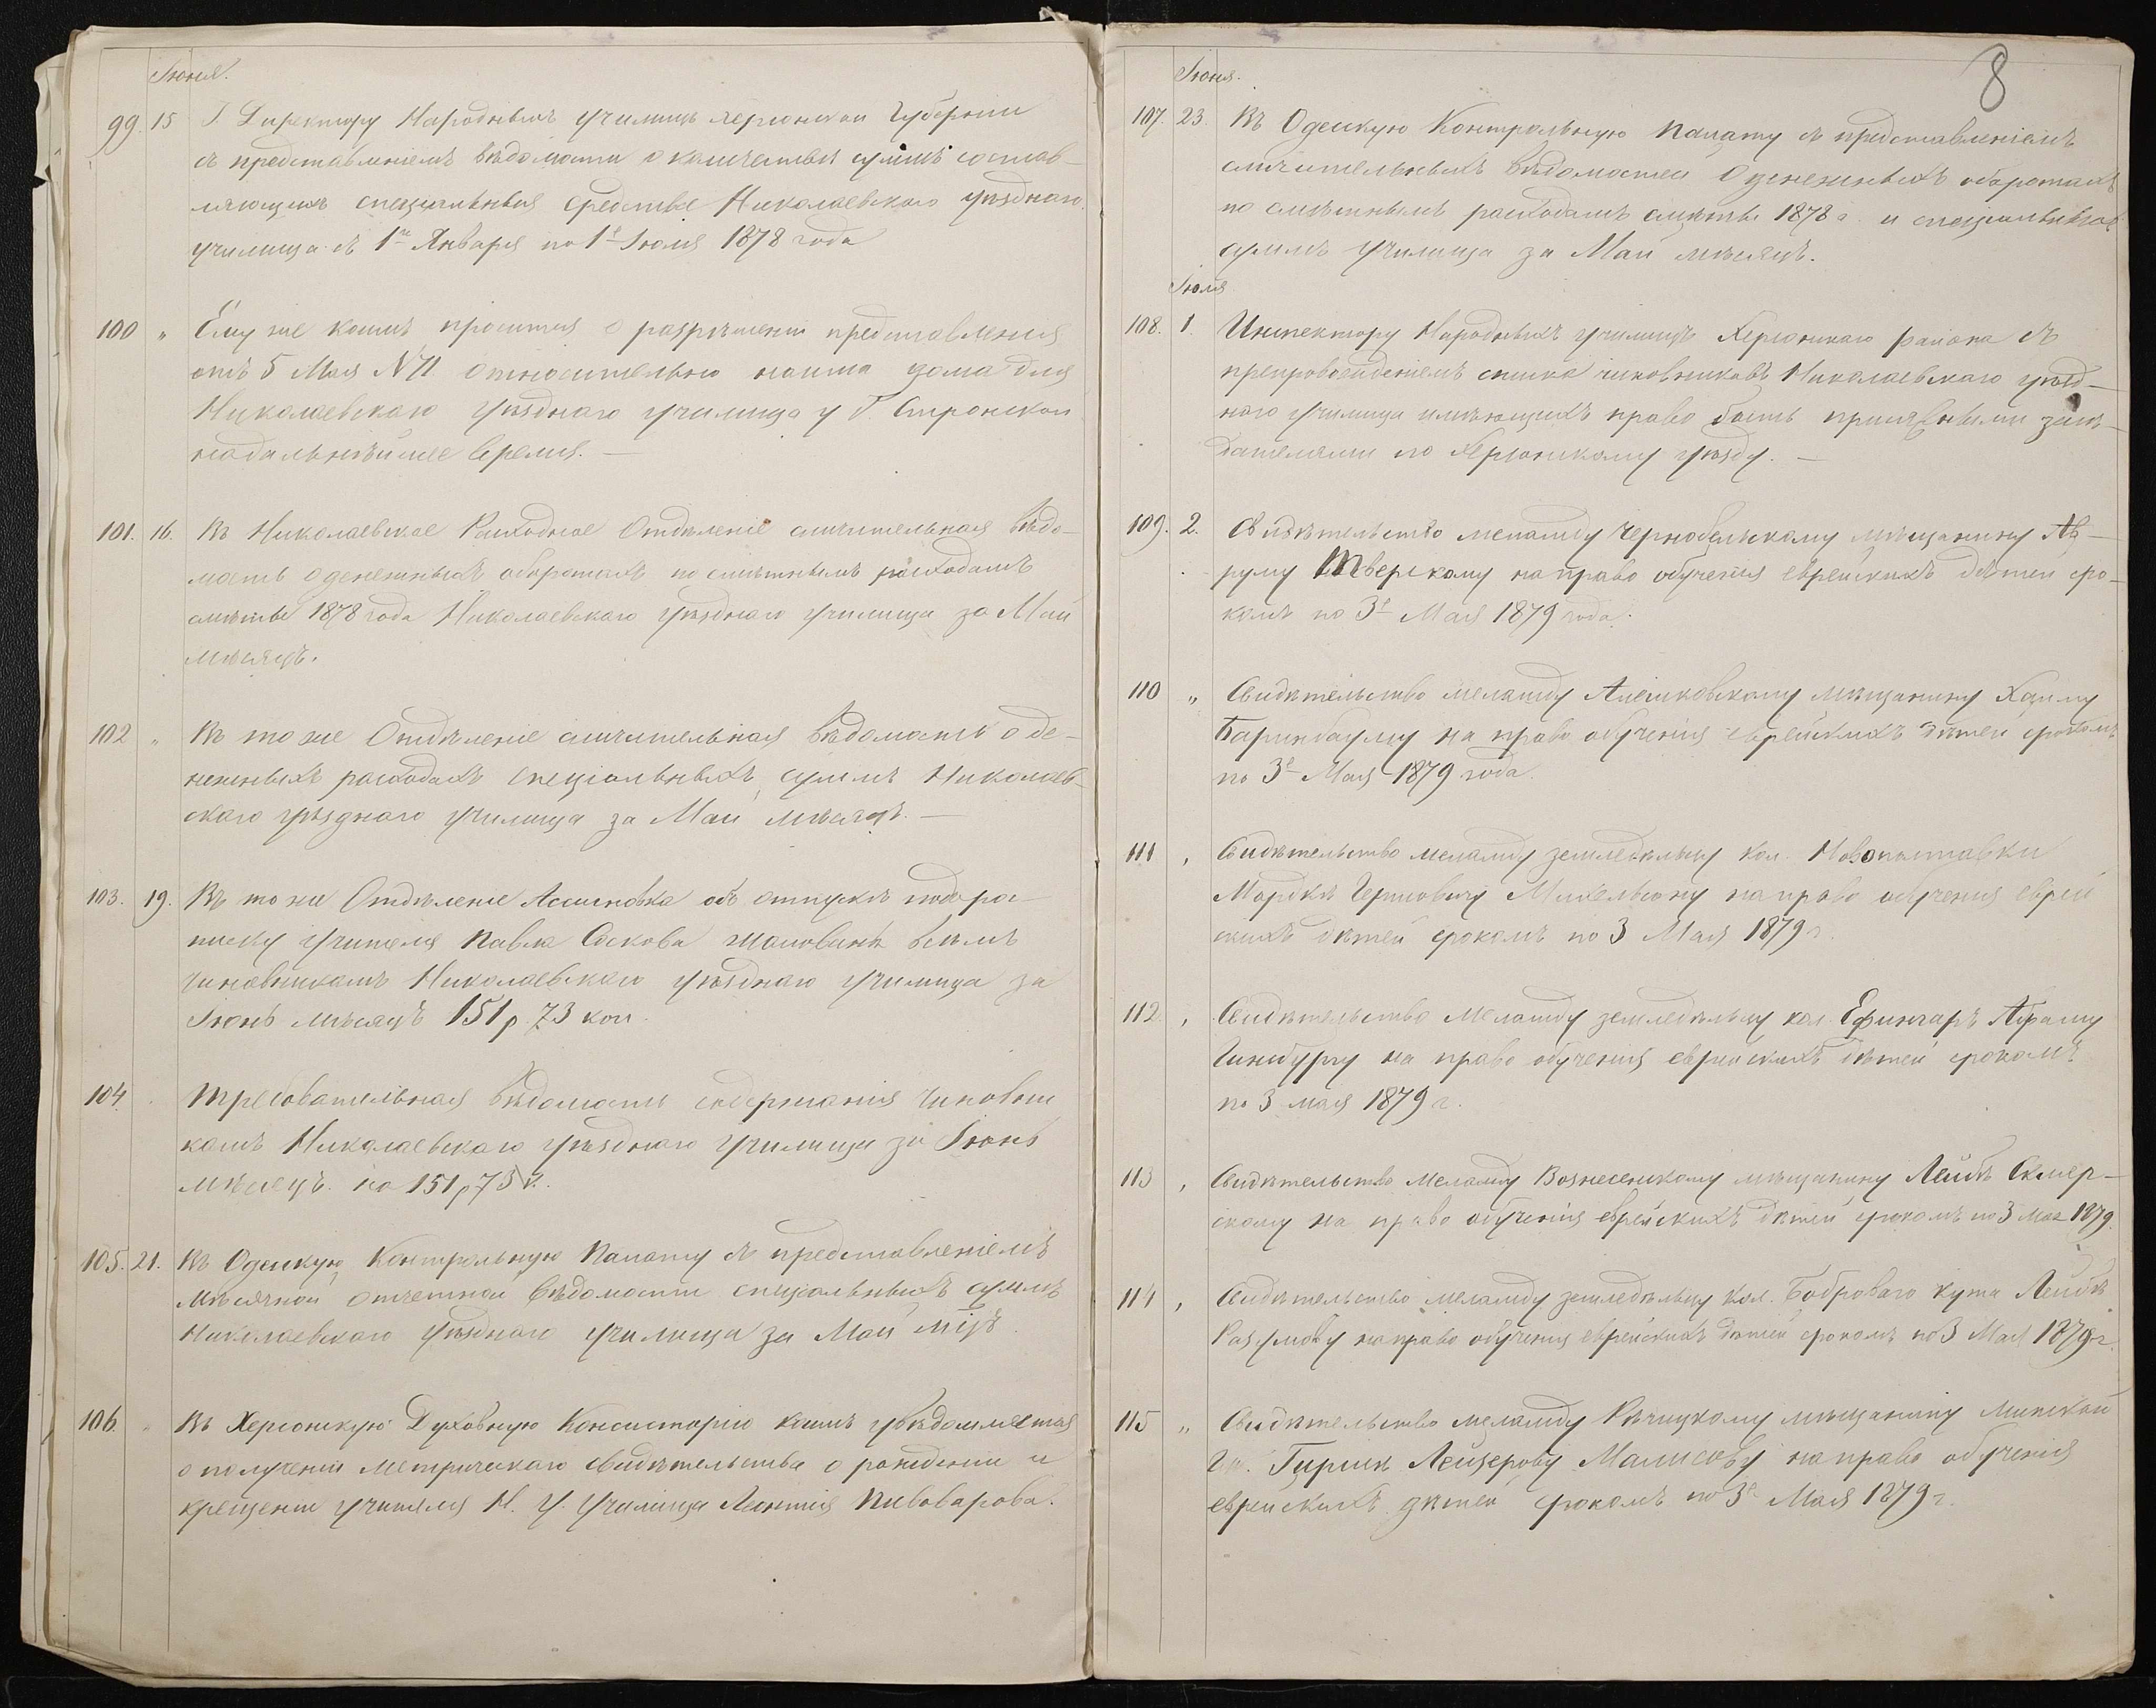 Іюня.
99. 15 Г Директору Народныхъ училищъ Херсонской Губерніи
съ представленіемъ вѣдомости о количествѣ суммъ состав-
ляющихъ спеціальныя средства Николаевскаго уѣзднаго
училища съ 1го Января по 1е Іюля 1878 года
100 " Ему же коимъ просится о разрѣшеніи представленія
отъ 5 Мая N 71 относительно найма дома для
Николаевскаго Уѣзднаго училища у Г.
надальнѣйшее время. —
101. 16. Въ Николаевское Расходное Отдѣленіе сличительная вѣдо-
мость о денежныхъ оборотахъ по смѣтнымъ расходамъ
смѣты 1878 года Николаевскаго Уѣзднаго Училища за Май
мѣсяцъ.
102 " Въ то же Отдѣленіе сличительная вѣдомость о де-
нежныхъ расходахъ спеціальныхъ суммъ Николаев-
скаго уѣзднаго училища за Май мѣсяцъ. —
103. 19. Въ то же Отдѣленіе Ассигновка объ отпускѣ подъ рос-
писку Учителя Павла жалованья всѣмъ
чиновникамъ Николаевскаго уѣзднаго Училища за
Іюнь мѣсяцъ 151 р. 73 коп.
104. Требовательная вѣдомость содержанія чиновни
камъ Николаевскаго уѣзднаго Училища за Іюнь
мѣсяцъ. на 151 р 73 к.
105. 21. Въ Одесскую Контрольную Палату съ представленіемъ
Мѣсячной отчетной вѣдомости спеціальныхъ суммъ
Николаевскаго Уѣзднаго Училища за Май мцъ.
106. " Въ Херсонскую Духовную Консисторію коимъ увѣдомляется
о полученіи Метрическаго свидѣтельства о рожденіи и
крещеніи учителя Н. У. Училища Леонтія Пивоварова.
8
Іюня.
107. 23. Въ Одесскую Контрольную Палату съ представленіемъ
сличительныхъ вѣдомостей о денежныхъ оборотахъ
по смѣтнымъ расходамъ смѣты 1878 г. и спеціальныхъ
суммъ Училища за Май мѣсяцъ.
Іюля
108. 1. Инспектору Народныхъ училищъ Херсонскаго района съ
препровожденіемъ списка чиновниковъ Николаевскаго уѣзд-
наго Училища имѣющихъ право быть присяжными засѣ-
дателями по Херсонскому уѣзду. —
109. 2. Свидѣтельство меламду Чернобыльскому мѣщанину Ав-
руму Тверскому на право обученія еврейскихъ дѣтей сро-
комъ по 3е Мая 1879 года.
110 " Свидѣтельство меламду Алешковскому мѣщанину Хаиму
Баринбауму на право обученія еврейскихъ дѣтей срокомъ
по 3е Мая 1879 года.
111 , Свидѣтельство меламду земледѣльцу кол. Новополтавки
Мордкѣ Гершовичу на право обученія еврей
скихъ дѣтей срокомъ по 3 Мая 1879 г.
112 , Свидѣтельство Меламду земледѣльцу кол. Ефингаръ Абраму
Гинзбургу на право обученія еврейскихъ дѣтей срокомъ
по 3 мая 1879 г.
113 , Свидѣтельство Меламду Вознесенскому мѣщанину Лейбѣ Скляр-
скому на право обученія еврейскихъ дѣтей срокомъ по 3 Мая 1879.
114 , Свидѣтельство меламду земледѣльцу кол. Боброваго кута Лейбѣ
Разумову на право обученія еврейскихъ дѣтей срокомъ по 3 Мая 1879 г.
115 " Свидѣтельство меламду Рѣчицкому мѣщанину Минской
Гу. Гиршѣ Лейзерову на право обученія
еврейскихъ дѣтей срокомъ по 3е Мая 1879 г.